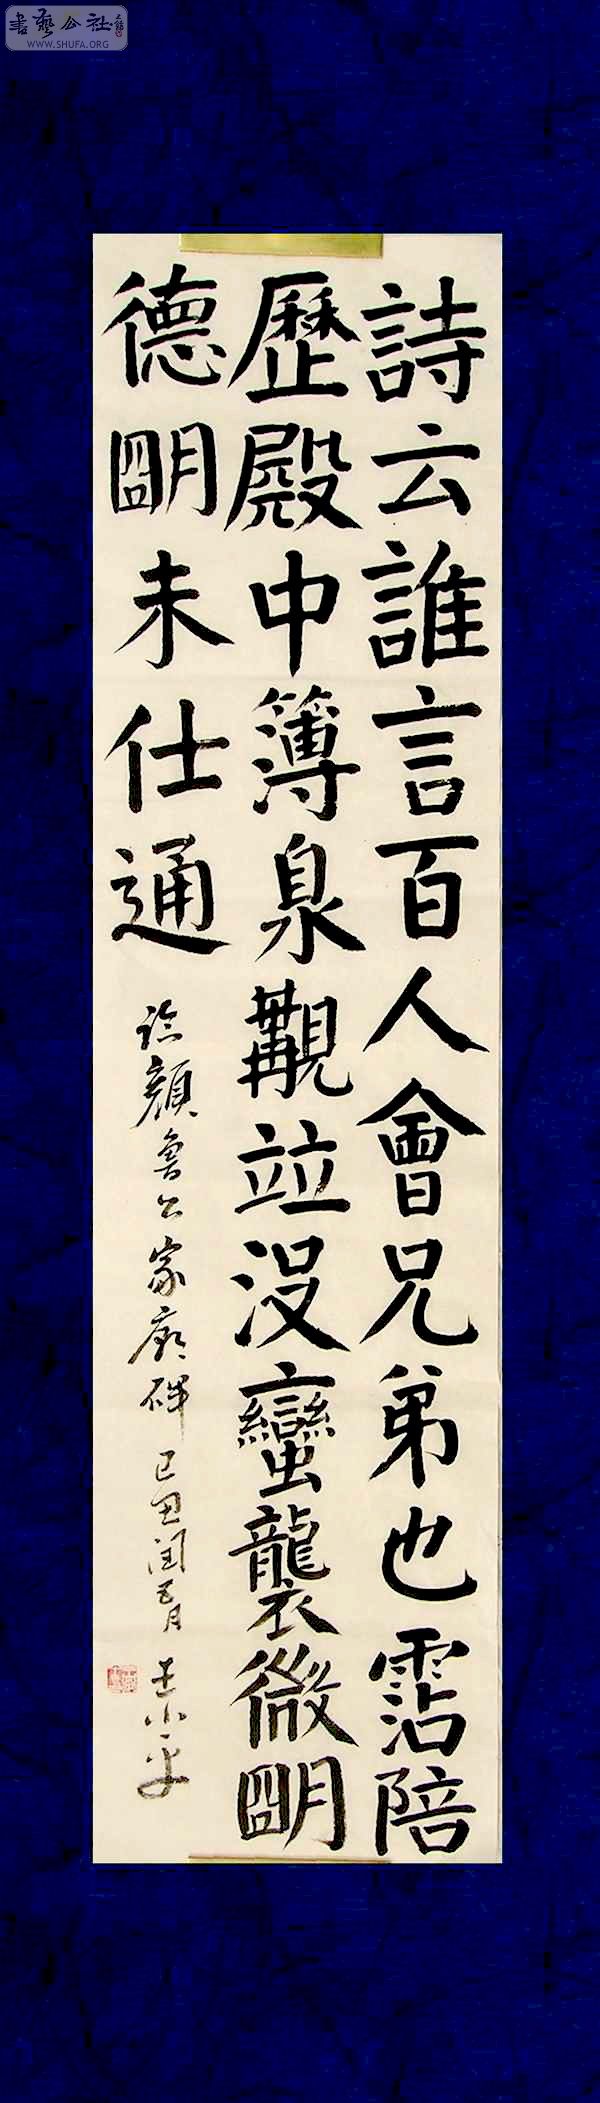 書藝公社
WWW.SHUFA.ORG
詩云誰言百人會兄弟也霑陪
歷殿中簿泉覯竝没蠻襲微朙
德朙未仕通
临顏魯公家廟碑 己丑閏五月 王小平